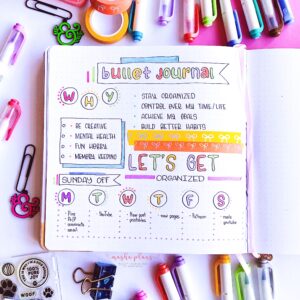 bullet journal
WHY
• STAY ORGANIZED
• CONTROL OVER MY TIME/LIFE
• ACHIEVE MY GOALS
• BUILD BETTER HABITS
• BE CREATIVE
• MENTAL HEALTH
• FUN HOBBY
• MEMORY KEEPING
LET'S GET
ORGANIZED
SUNDAY OFF
M T W T F S
• YouTube
• new pages
• Patreon
masha plans
WOOF